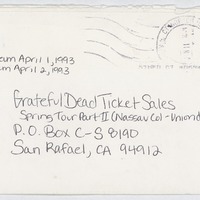 eum April 1, 1993
um April 2, 1993
Grateful Dead Ticket Sales
Spring Tour Part II (Nassau Col - Uniond
P.O. Box C-S 8190
San Rafael, CA 94912